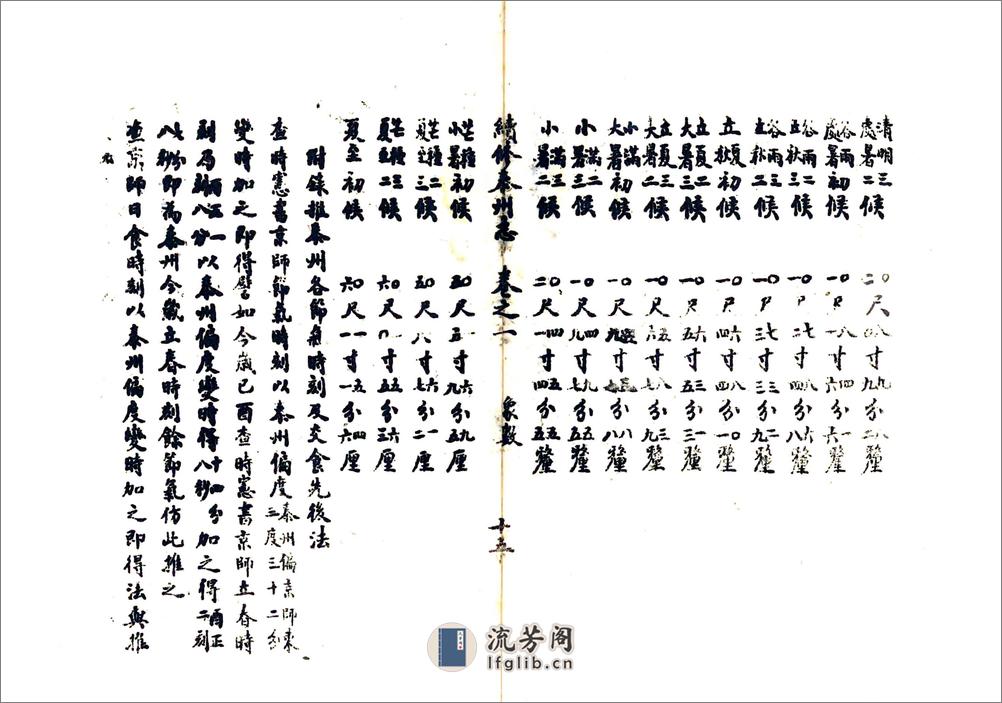 清明三處暑二候 〇二尺八四寸九九分八二釐
谷雨處暑初候 〇一尺八一寸四六分一六釐
谷雨二立秋三候 〇一尺七二寸八四分六八釐
谷雨三立秋二候 〇一尺七三寸三三分二九釐
立夏立秋初候 〇一尺六四寸八四分〇一釐
立夏二大暑三候 〇一尺六五寸三五分一三釐
立夏三大暑二候 〇一尺五六寸八七分三九釐
小滿大暑初候 〇一尺寸分八八釐
小滿二小暑三候 〇一尺四九寸九七分五五釐
小滿三小暑二候 〇二尺四一寸五四分五五釐
續修泰州志 卷之一 象數 十五
芒種小暑初候 〇五尺五寸六九分九五厘
芒種二夏至三候 〇五尺八寸六七分一二厘
芒種三夏至二候 〇六尺寸五五分六三厘
夏至初候 〇六尺一一寸五一分四六厘
附錄推泰州各節氣時刻及交食先後法
查時憲書京師節氣時刻以泰州偏度泰州偏京師東三度三十二分
變時加之即得譬如今歲己酉查時憲書京師立春時
刻為酉正一刻八分以泰州偏度變時得十四分八秒加之得酉正二刻
七分八秒即為泰州今歲立春時刻餘節氣仿此推之
查京師日食時刻以泰州偏度變時加之即得法與推
流芳阁
lfglib.cn